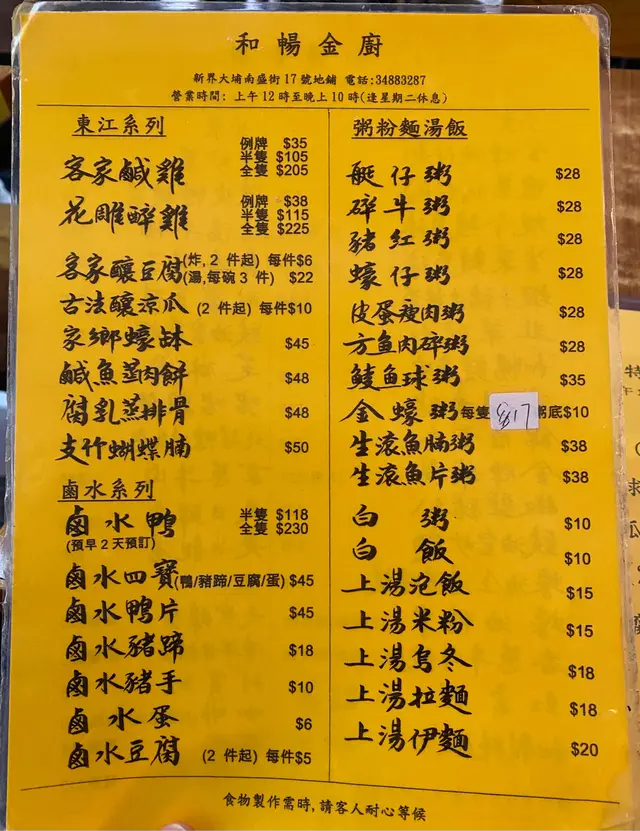 和暢金廚
新界大埔南盛街17號地鋪 電話:34883287
營業時間: 上午12時至晚上10時(逢星期二休息)
東江系列
客家鹹雞 例牌 $35
半隻 $105
全隻 $205
花雕醉雞 例牌 $38
半隻 $115
全隻 $225
客家釀豆腐(炸, 2 件起) 每件$6
(湯,每碗 3 件) $22
古法釀涼瓜 (2 件起) 每件$10
家鄉蠔缽 $45
鹹魚蒸肉餅 $48
腐乳蒸排骨 $48
支竹蝴蝶腩 $50
鹵水系列
鹵水鴨 半隻 $118
全隻 $230
(預早2天預訂)
鹵水四寶(鴨/豬蹄/豆腐/蛋) $45
鹵水鴨片 $45
鹵水豬蹄 $18
鹵水豬手 $10
鹵水蛋 $6
鹵水豆腐 (2 件起) 每件$5
粥粉麵湯飯
艇仔粥 $28
碎牛粥 $28
豬紅粥 $28
蠔仔粥 $28
皮蛋瘦肉粥 $28
方魚肉碎粥 $28
鯪魚球粥 $35
金蠔粥 每隻 $17 粥底$10
生滾魚腩粥 $38
生滾魚片粥 $38
白粥 $10
白飯 $10
上湯泡飯 $15
上湯米粉 $15
上湯烏冬 $18
上湯拉麵 $18
上湯伊麵 $20
食物製作需時,請客人耐心等候